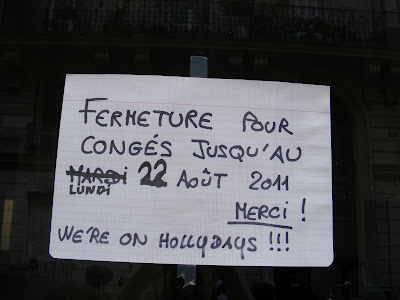 FERMETURE POUR
CONGÉS JUSQU'AU
MARDI 22 AOÛT 2011
LUNDI
MERCI !
WE'RE ON HOLLYDAYS !!!